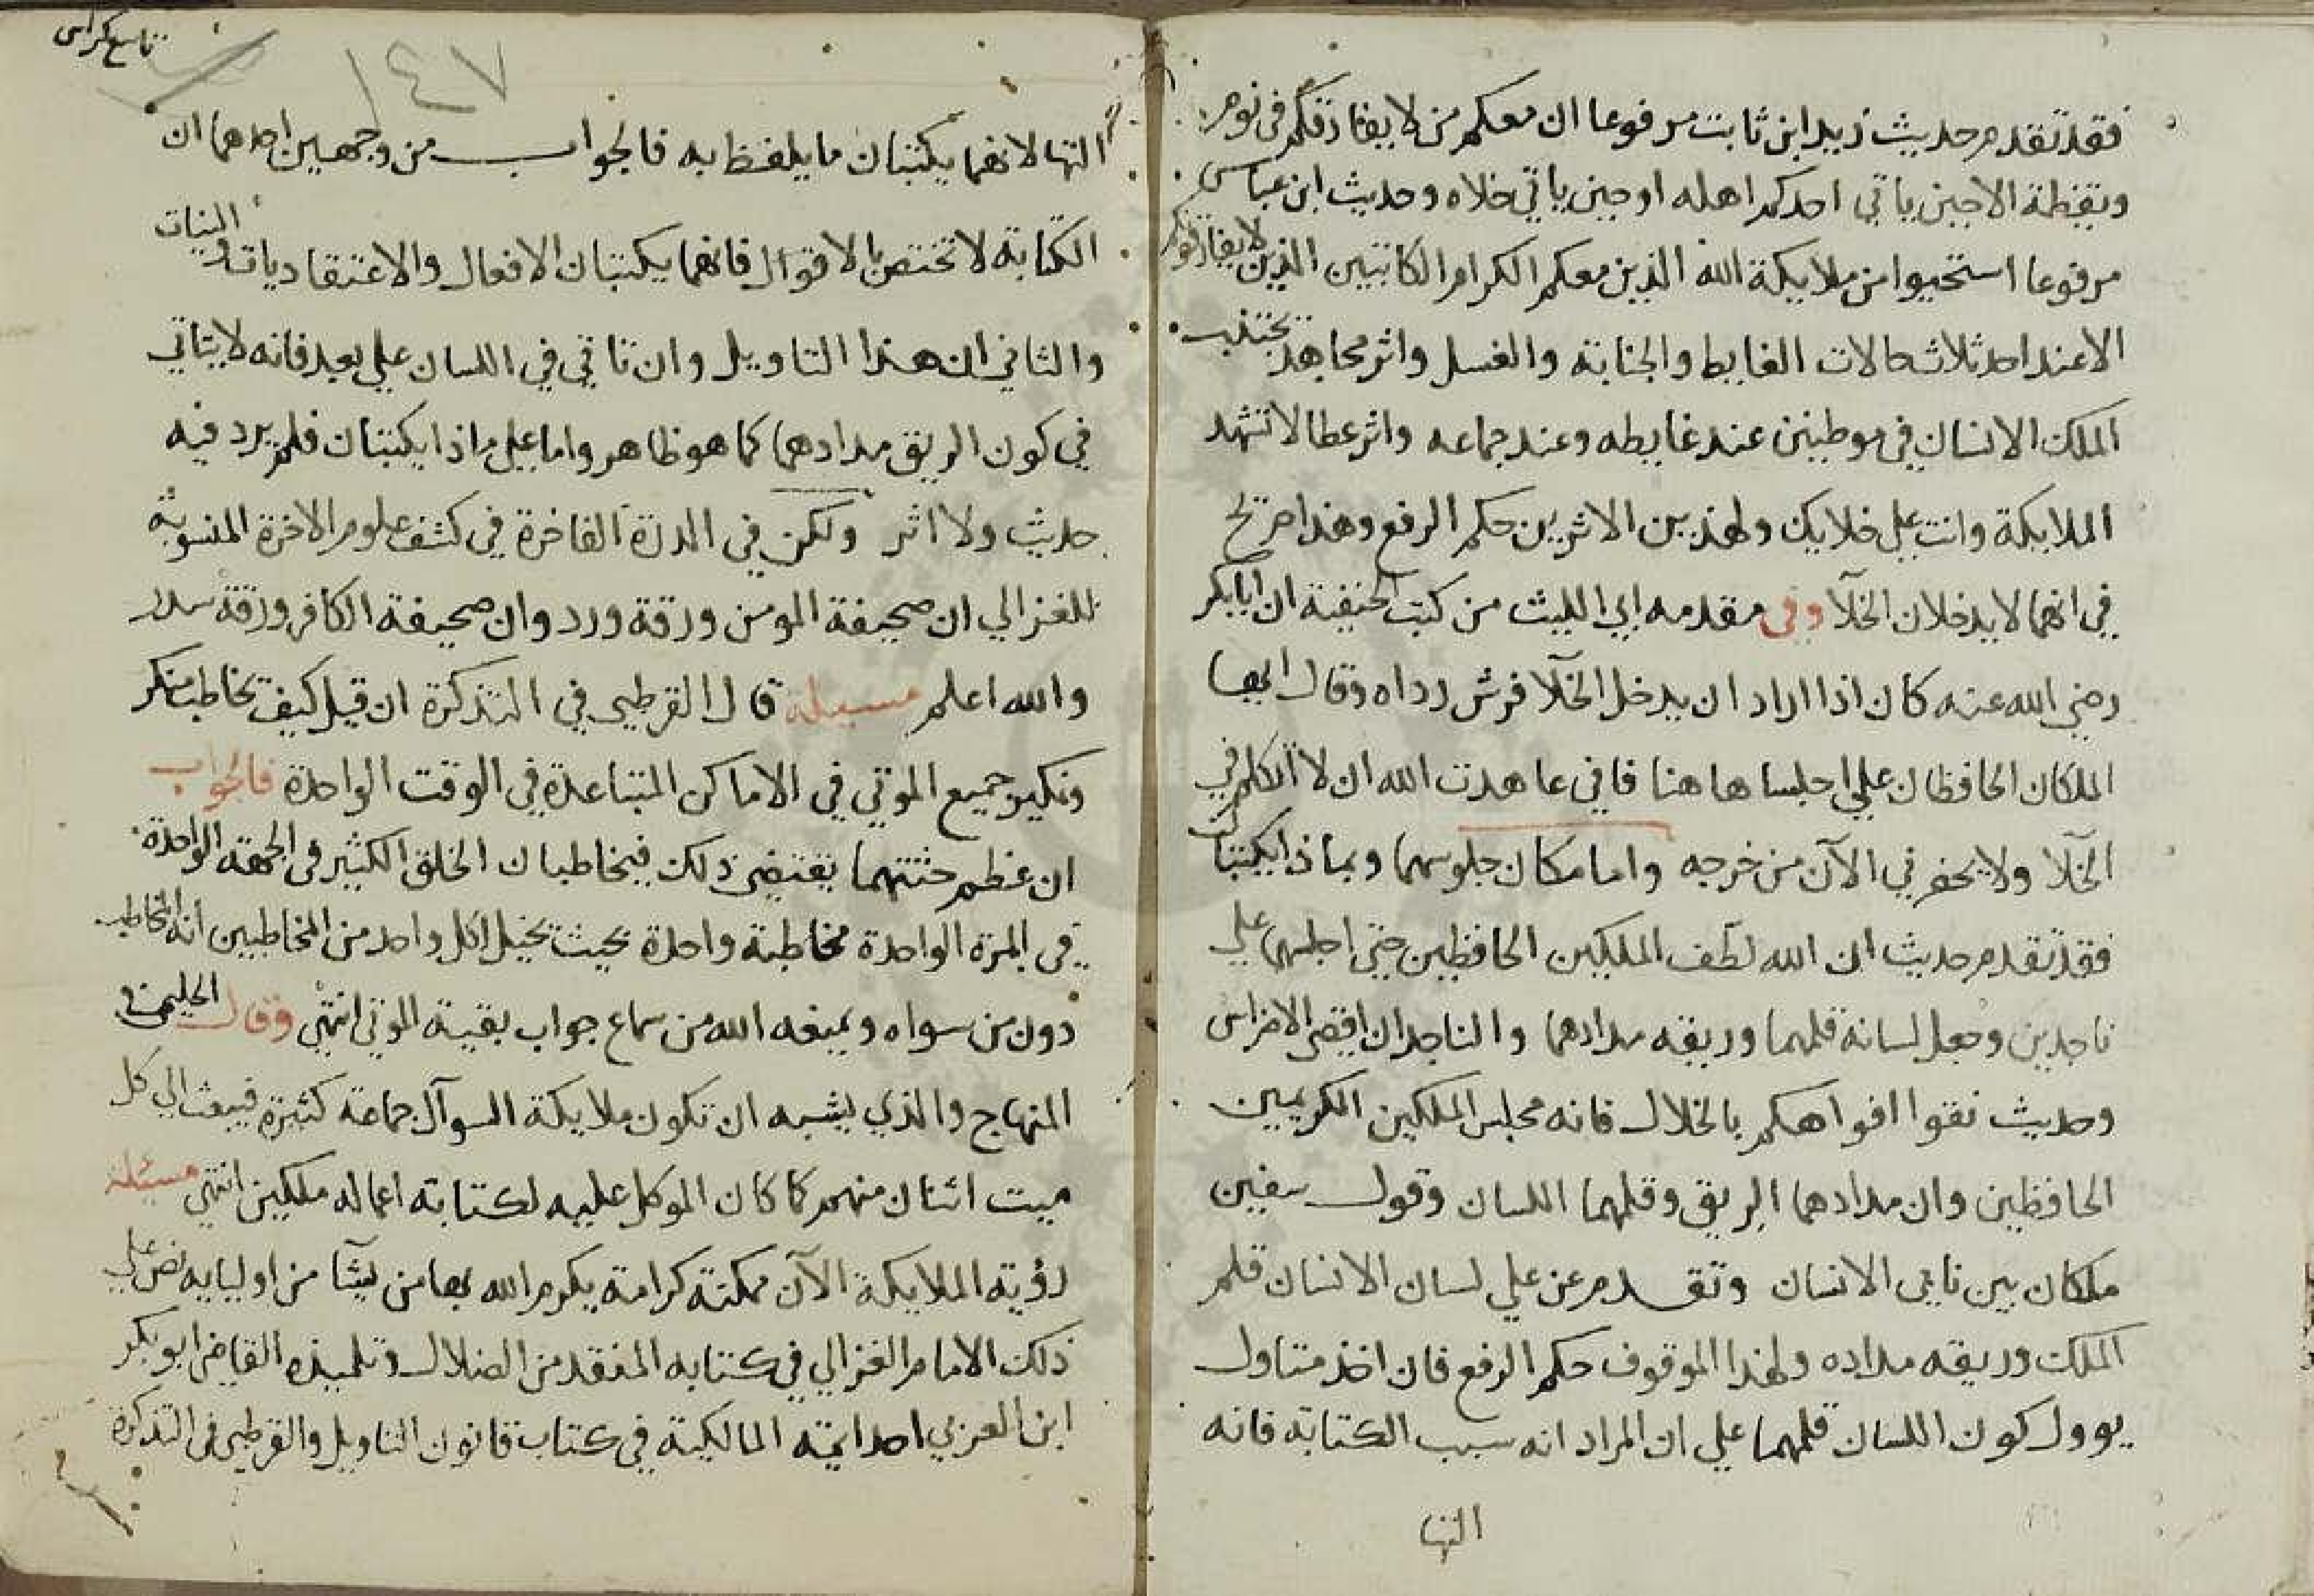 فقد تقدم حديث زيد ابن ثابت مرفوعا ان معكم من لا يفارقكم في نوم
ويقظة الا حين ياتي احدكم اهله او حين ياتي خلاه وحديث ابن عباس
مرفوعا استحيوا من ملايكة الله الذين معكم الكرام الكاتبين الذين لا يفارقونكم
الا عند احد ثلاث حالات الغايط والجنابة والغسل واثر مجاهد يجتنب
الملك الانسان في موطنين عند غايطه وعند جماعه واثر عطا لا تشهد
الملايكة وانت على خلايك ولهذين الاثرين حكم الرفع وهذا صريح
في انهما لا يدخلان الخلآ وفي مقدمه ابي الليث من كتب الحنفية ان ابا بكر
رضي الله عنه كان اذا اراد ان يدخل الخلآ فرش رداه وقال ايها
الملكان الحافظان علي اجلسا هاهنا فاني عاهدت الله ان لا اتكلم في
الخلآ ولا في الآن من خرجه واما مكان جلوسهما وبماذا يكتبان
فقد تقدم حديث ان الله لطف الملكين الحافظين حتى اجلسهما على
ناجدين وجعل لسانه قلمهما وريقه مدادهما والناجدان اقصى الاضراس
وحديث نقوا افواهكم بالخلال فانه مجلس الملكين الكريمين
الحافظين وان مدادهما الريق وقلمهما اللسان وقول سفين
ملكان بين نابي الانسان وتقدم عن علي لسان الانسان قلم
الملك وريقه مداده ولهذا الموقوف حكم الرفع فان اخذ متناول
يوول كون اللسان قلمهما علي ان المراد انه سبب الكتابة فانه
التها
تاسع كراس
١٤٧
التها لانهما يكتبان ما يلفظ به فالجواب من وجهين احدهما ان
الكتابة لا تختص بالاقوال فانهما يكتبان الافعال والاعتقاديات والنيات
والثاني ان هذا التاويل وان تاتي في اللسان علي بعد فانه لا يتاتي
في كون الريق مدادهما كما هو ظاهر واما على ماذا يكتبان فلم يرد فيه
حديث ولا اثر ولكن في الدرة الفاخرة في كشف علوم الاخرة المنسوبة
للغزالي ان صحيفة المومن ورقة ورد وان صحيفة الكافر ورقة سدر
والله اعلم مسيلة قال القرطبي في التذكرة ان قيل كيف تخاطب منكر
ونكير جميع الموتي في الاماكن المتباعدة في الوقت الواحدة فالجواب
ان عظم جثتهما يقتضي ذلك فيخاطبان الخلق الكثير في الجهة الواحدة
في المرة الواحدة مخاطبة واحدة بحيث يخيل لكل واحد من المخاطبين انه المخاطب
دون من سواه ويمنعه الله من سماع جواب بقية الموتي انتهي وقال الحليمي في
المنهاج والذي يشبه ان تكون ملايكة السوآل جماعة كثيرة فيبعث الي كل
ميت اثنان منهم كما كان الموكل عليه لكتابة اعماله ملكين انتهي مسئلة
رؤية الملايكة الآن ممكنة كرامة يكرم الله بها من يشآ من اوليايه نص علي
ذلك الامام الغزالي في كتابه المنقد من الضلال وتلميذه القاضي ابو بكر
ابن العربي احد ايمة المالكية في كتاب قانون التاويل والقرطبي في التذكرة